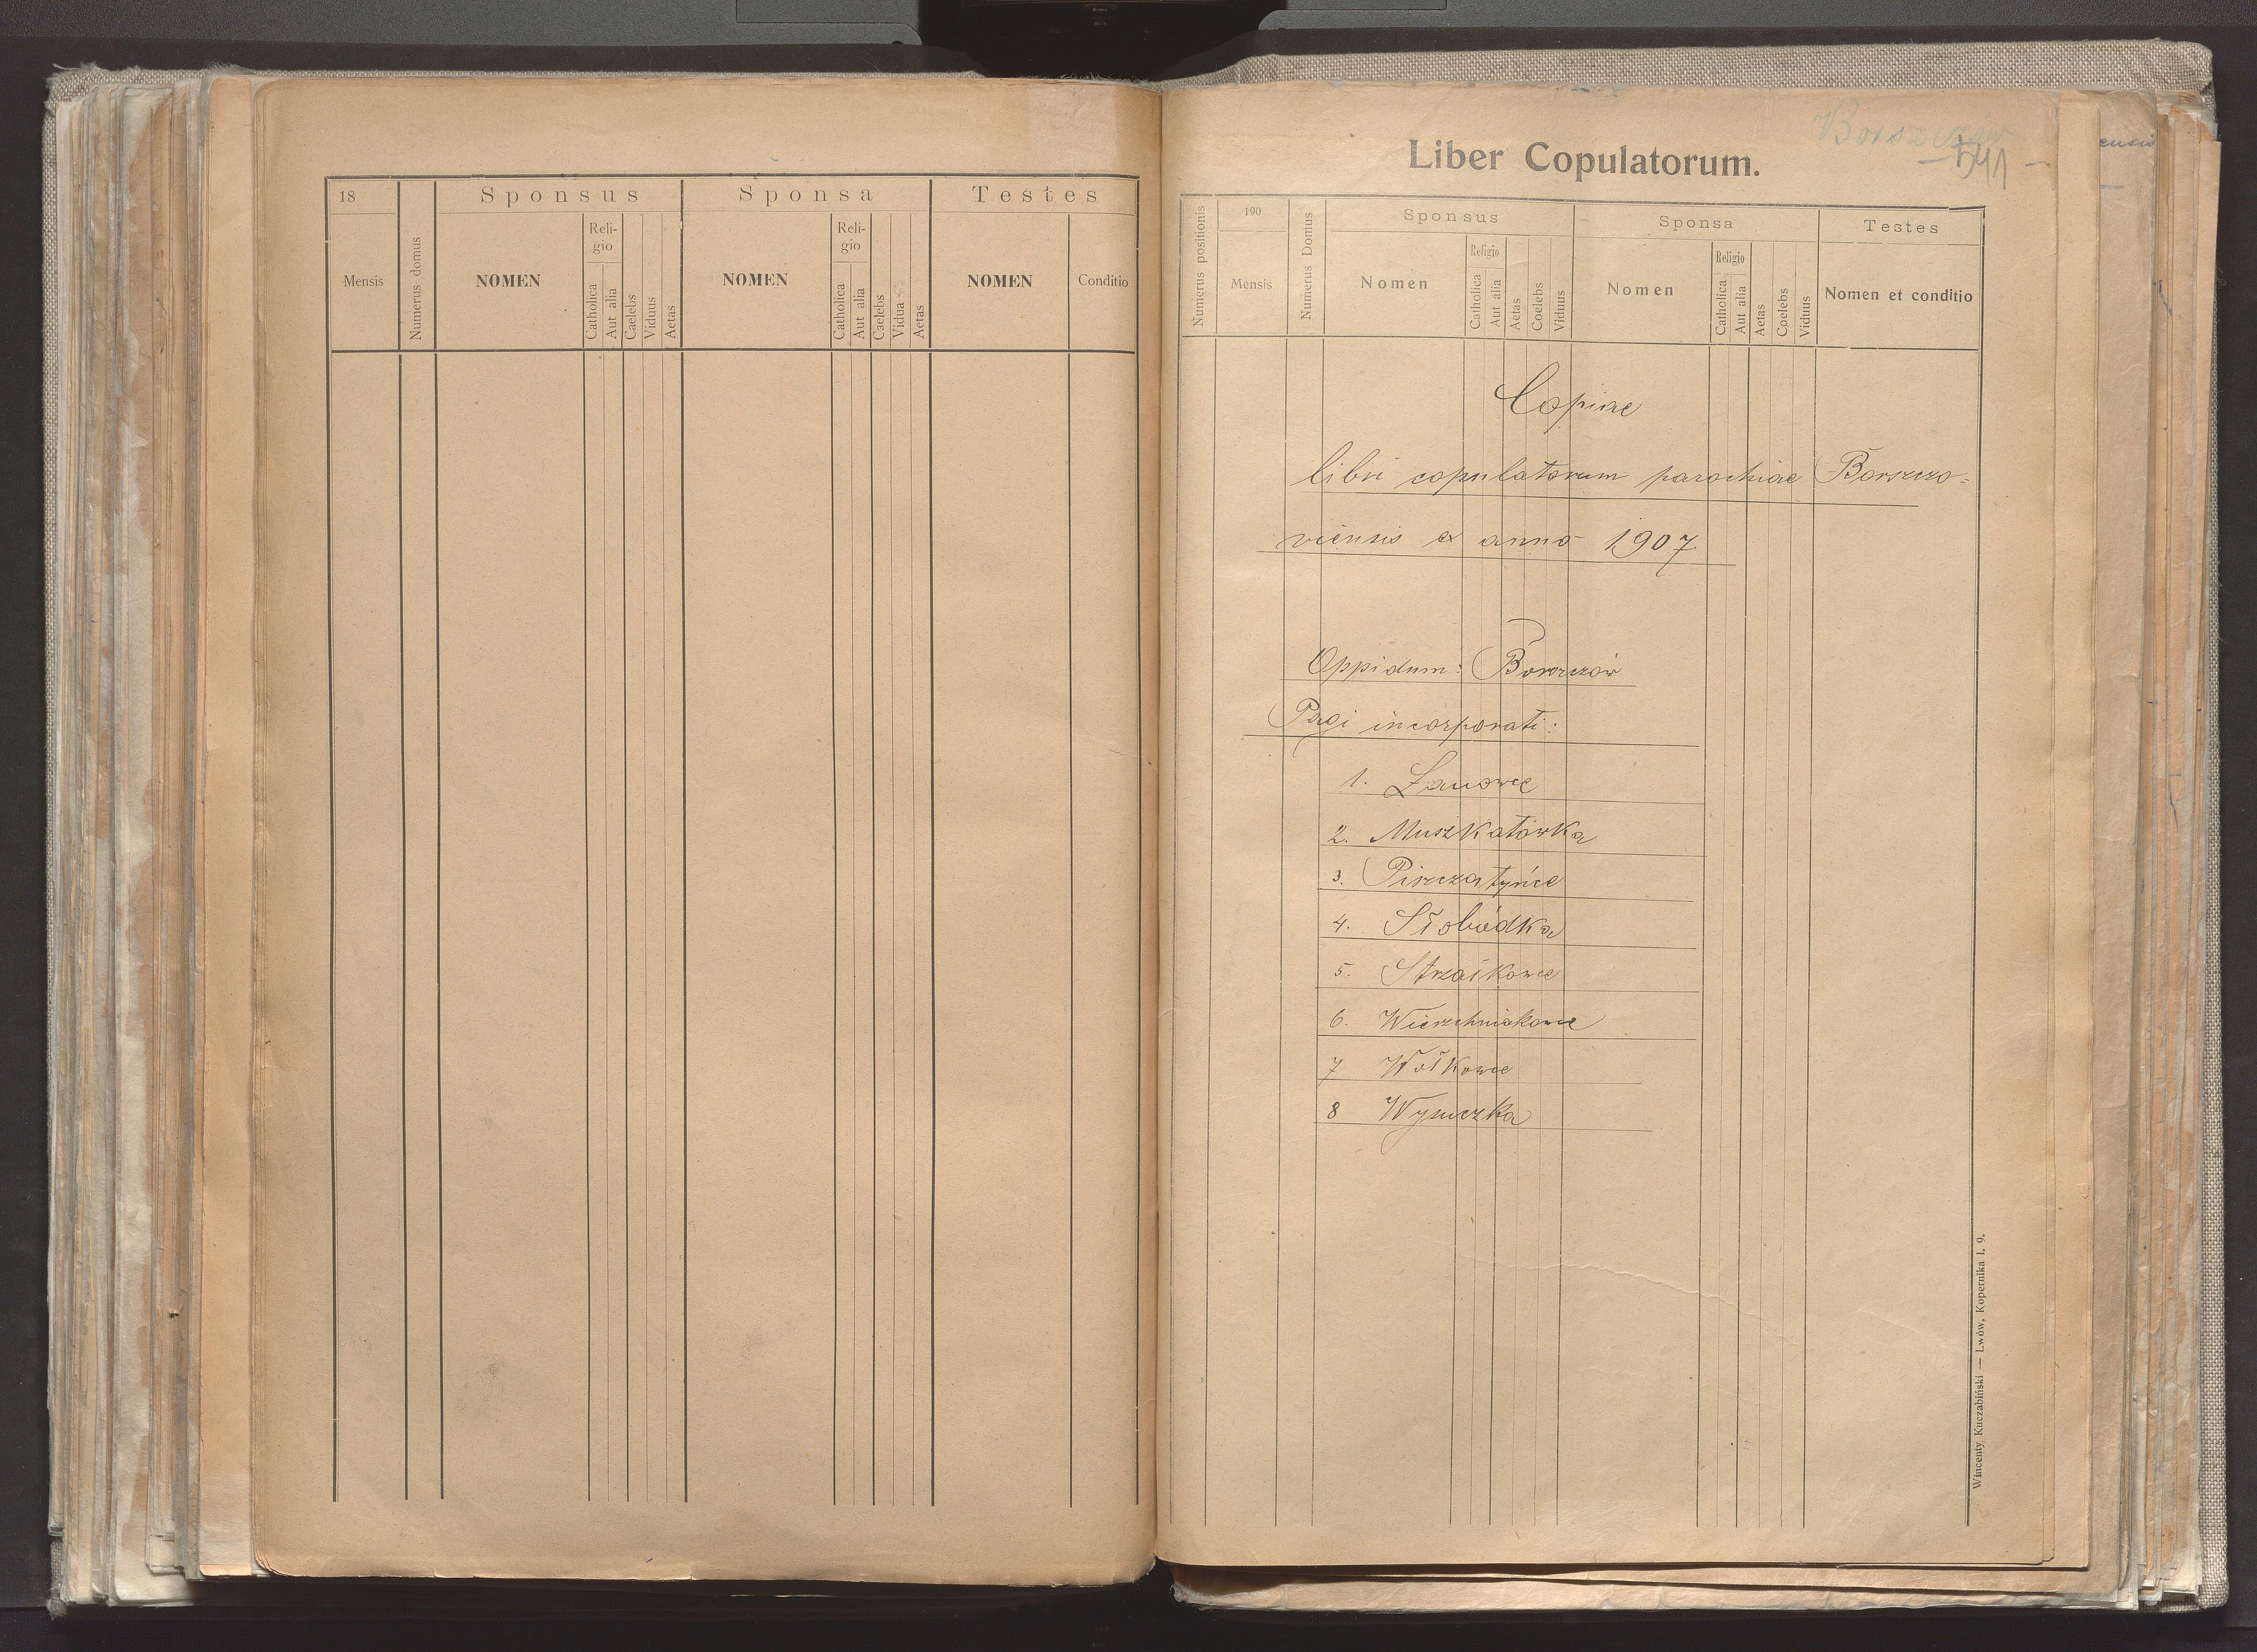 18
Sponsus
Sponsa
Testes
Mensis
Numerus domus
NOMEN
Reli-
gio
Catholica
Aut alia
Caelebs
Viduus
Aetas
NOMEN
Reli-
gio
Catholica
Aut alia
Caelebs
Vidua
Aetas
NOMEN
Conditio
Borszczów
Liber Copulatorum.
— 541 —
Numerus positionis
190
Mensis
Numerus Domus
Sponsus
Sponsa
Testes
Nomen
Religio
Catholica
Aut alia
Aetas
Coelebs
Viduus
Nomen
Religio
Catholica
Aut alia
Aetas
Coelebs
Viduus
Nomen et conditio
Copiae
libri copulatorum parochiae Borszczo=
viensis ex anno 1907
Oppidum: Borszczów
Pagi incorporati:
1. Łanowce
2. Muszkatówka
3. Piszczatyńce
4. Słobódka
5. Strzałkowce
6. Wierzchniakowce
7 Wołkowce
8 Wysuczka
Wincenty Kuczabiński — Lwów, Kopernika l. 9.
ensis